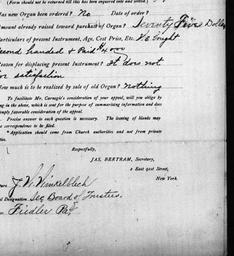 (Form should not be returned till this has been expended out and added)
as new Organ been ordered? No Date of order?
Amount already raised toward purchase of Organ? Seventy Five Dollars
Particulars of present Instrument, Age, Cost Price, Etc. We bought
second handed & Paid $4.00
Reason for displacing present Instrument? It does not
satisfaction
How much is to be realized by sale of old Organ? Nothing
To facilitate Mr. Carnegie's consideration of your appeal, will you oblige by
in the above, which is sent for the purpose of summarizing information and does
imply favorable consideration of the appeal.
Precise answer to each question is necessary. The issuing of blanks may
correspondence to be filed.
Application should come from Church authorities and not from private
Respectfully,
JAS. BERTRAM, Secretary,
2 East 91st Street,
New York.
J. W. Winkelblech
Designation Sec Board of Trustees
Fiedler Pa